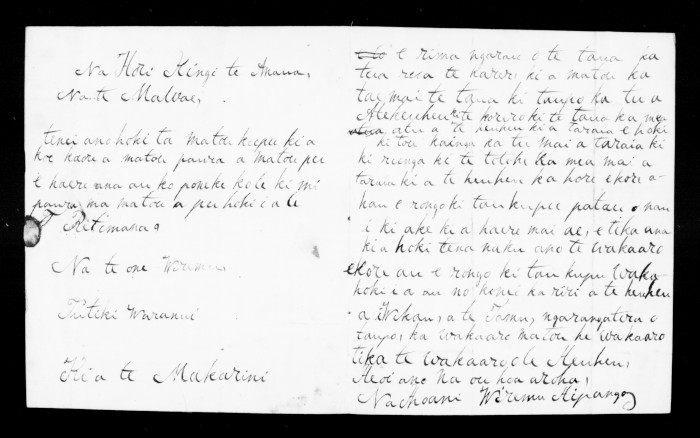 Na Hori Kingi te Anaua,
Na te Mawae,
tenei ano hoki ta matou kupu ki a
koe kaore a matou paura a matou pu
e haere ana au ko poneke ko te ki mi
paura ma matou a pu hoki i a te
Ritimana
Na te one Wiremu
Kia te Makarini
e rima ngarau o te taua ka
tua rera te karere ki a matou ka
tae mai te taua ki taupo ka tu a
te heuheu ki te korero ki te taua ka mea
atu a te heuheu ki a taraia e hoki
ki tou kainga ka tu mai a taraia ki
ki runga ki te tohe ka mea mai a
taraia ki a te heuheu ka hore ekore a-
hau e rongo ki tau kupu patau
i ki ake ki a haere mai ae, e tika ana
ki a hoki tena naku ano te wakaaro
ekore au e rongo ki tau kupu waka
hoki i a au no konei ka riri a te heuheu
a te Tamu, ngarangatira o
taupo, ka wakaaro matou he wakaaro
tika te wakaaro o te Heuheu,
Heoi ano Na ou hoa aroha,
Na Hoani Wiremu Hipango